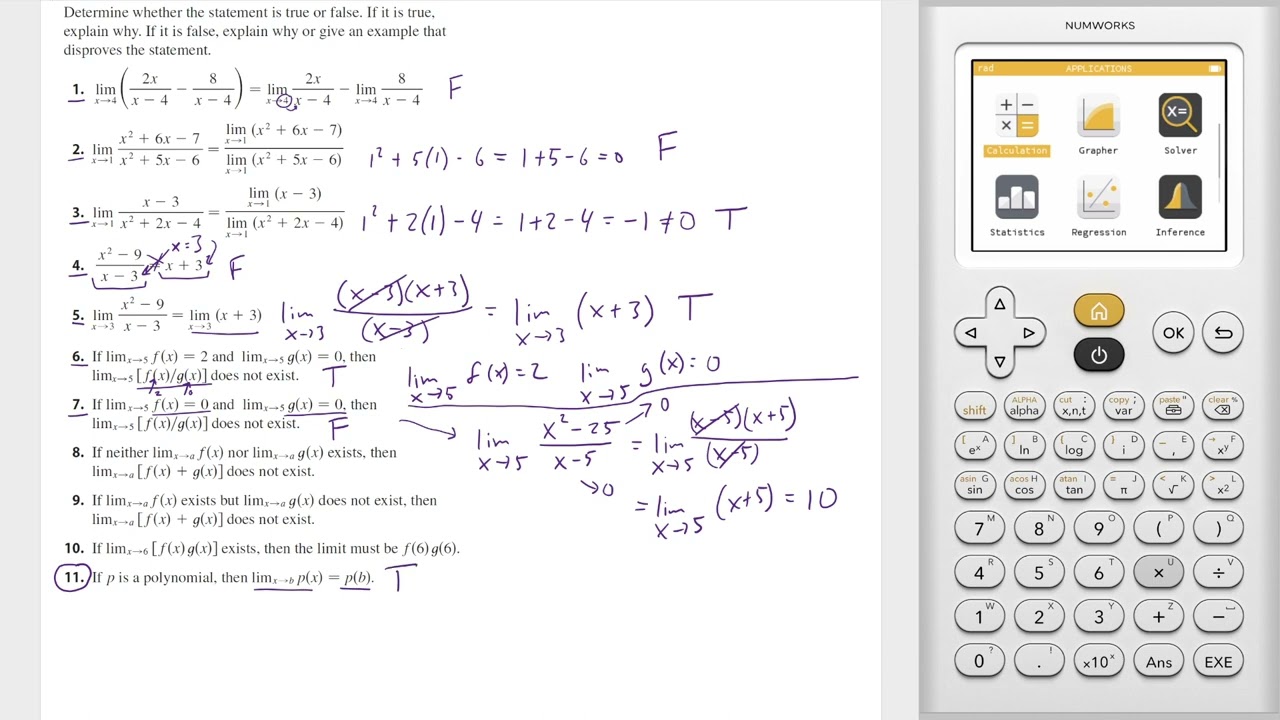 Determine whether the statement is true or false. If it is true,
explain why. If it is false, explain why or give an example that
disproves the statement.
1. lim x→4 (2x/(x − 4) − 8/(x − 4)) = lim x→4 2x/(x − 4) − lim x→4 8/(x − 4) F
2. lim x→1 (x² + 6x − 7)/(x² + 5x − 6) = lim x→1 (x² + 6x − 7) / lim x→1 (x² + 5x − 6) 1² + 5(1) - 6 = 1+5-6 = 0 F
3. lim x→1 (x − 3)/(x² + 2x − 4) = lim x→1 (x − 3) / lim x→1 (x² + 2x − 4) 1² + 2(1) - 4 = 1+2-4 = -1 ≠ 0 T
x=3
4. (x² − 9)/(x − 3) = x + 3 F
5. lim x→3 (x² − 9)/(x − 3) = lim x→3 (x + 3) lim x→3 (x-3)(x+3)/(x-3) = lim x→3 (x+3) T
6. If lim x→5 f(x) = 2 and lim x→5 g(x) = 0, then
lim x→5 [f(x)/g(x)] does not exist. T
2 0
lim x→5 f(x)=2 lim x→5 g(x)=0
7. If lim x→5 f(x) = 0 and lim x→5 g(x) = 0, then
lim x→5 [f(x)/g(x)] does not exist. F
lim x→5 (x²-25)/(x-5) = lim x→5 (x-5)(x+5)/(x-5)
→0
→0
= lim x→5 (x+5) = 10
8. If neither lim x→a f(x) nor lim x→a g(x) exists, then
lim x→a [f(x) + g(x)] does not exist.
9. If lim x→a f(x) exists but lim x→a g(x) does not exist, then
lim x→a [f(x) + g(x)] does not exist.
10. If lim x→6 [f(x)g(x)] exists, then the limit must be f(6)g(6).
11. If p is a polynomial, then lim x→b p(x) = p(b). T
NUMWORKS
rad APPLICATIONS
Calculation Grapher Solver
Statistics Regression Inference
OK
shift ALPHA alpha cut : x,n,t copy ; var paste " clear %
[ A eˣ ] B ln { C log } D i _ E , → F xʸ
asin G sin acos H cos atan I tan = J π < K √ > L x²
7 M 8 N 9 O ( P ) Q
4 R 5 S 6 T × U ÷ V
1 W 2 X 3 Y + Z −
0 ? . ! ×10ˣ Ans EXE